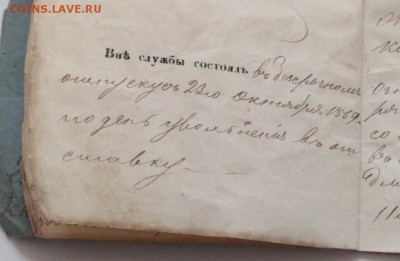 COINS.LAVE.RU
Внѣ службы состоялъ въ безсрочномъ
отпуску съ 23го октября 1869г.
по день увольненія въ от
ставку —